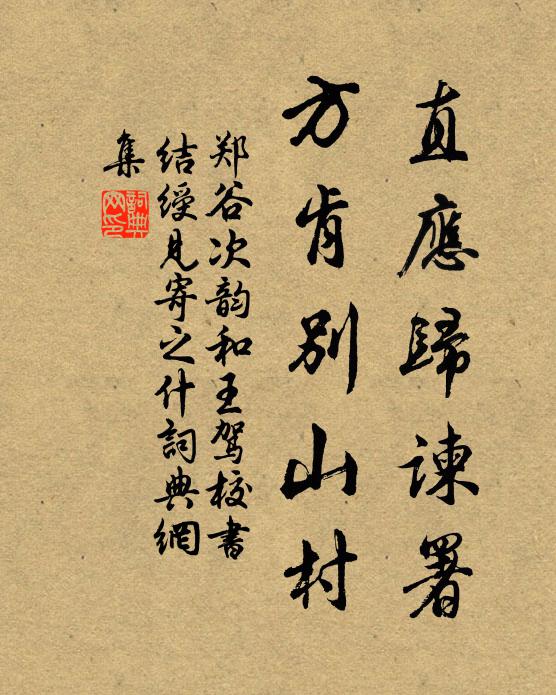 直應歸諫署
方肯别山村
郑谷次韵和王駕校書
结绶見寄之什詞典網
集
詞典网印